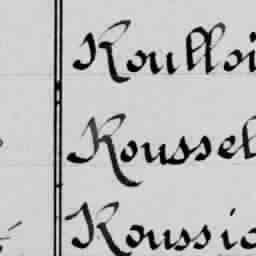 Roulloi
Roussel
Roussio